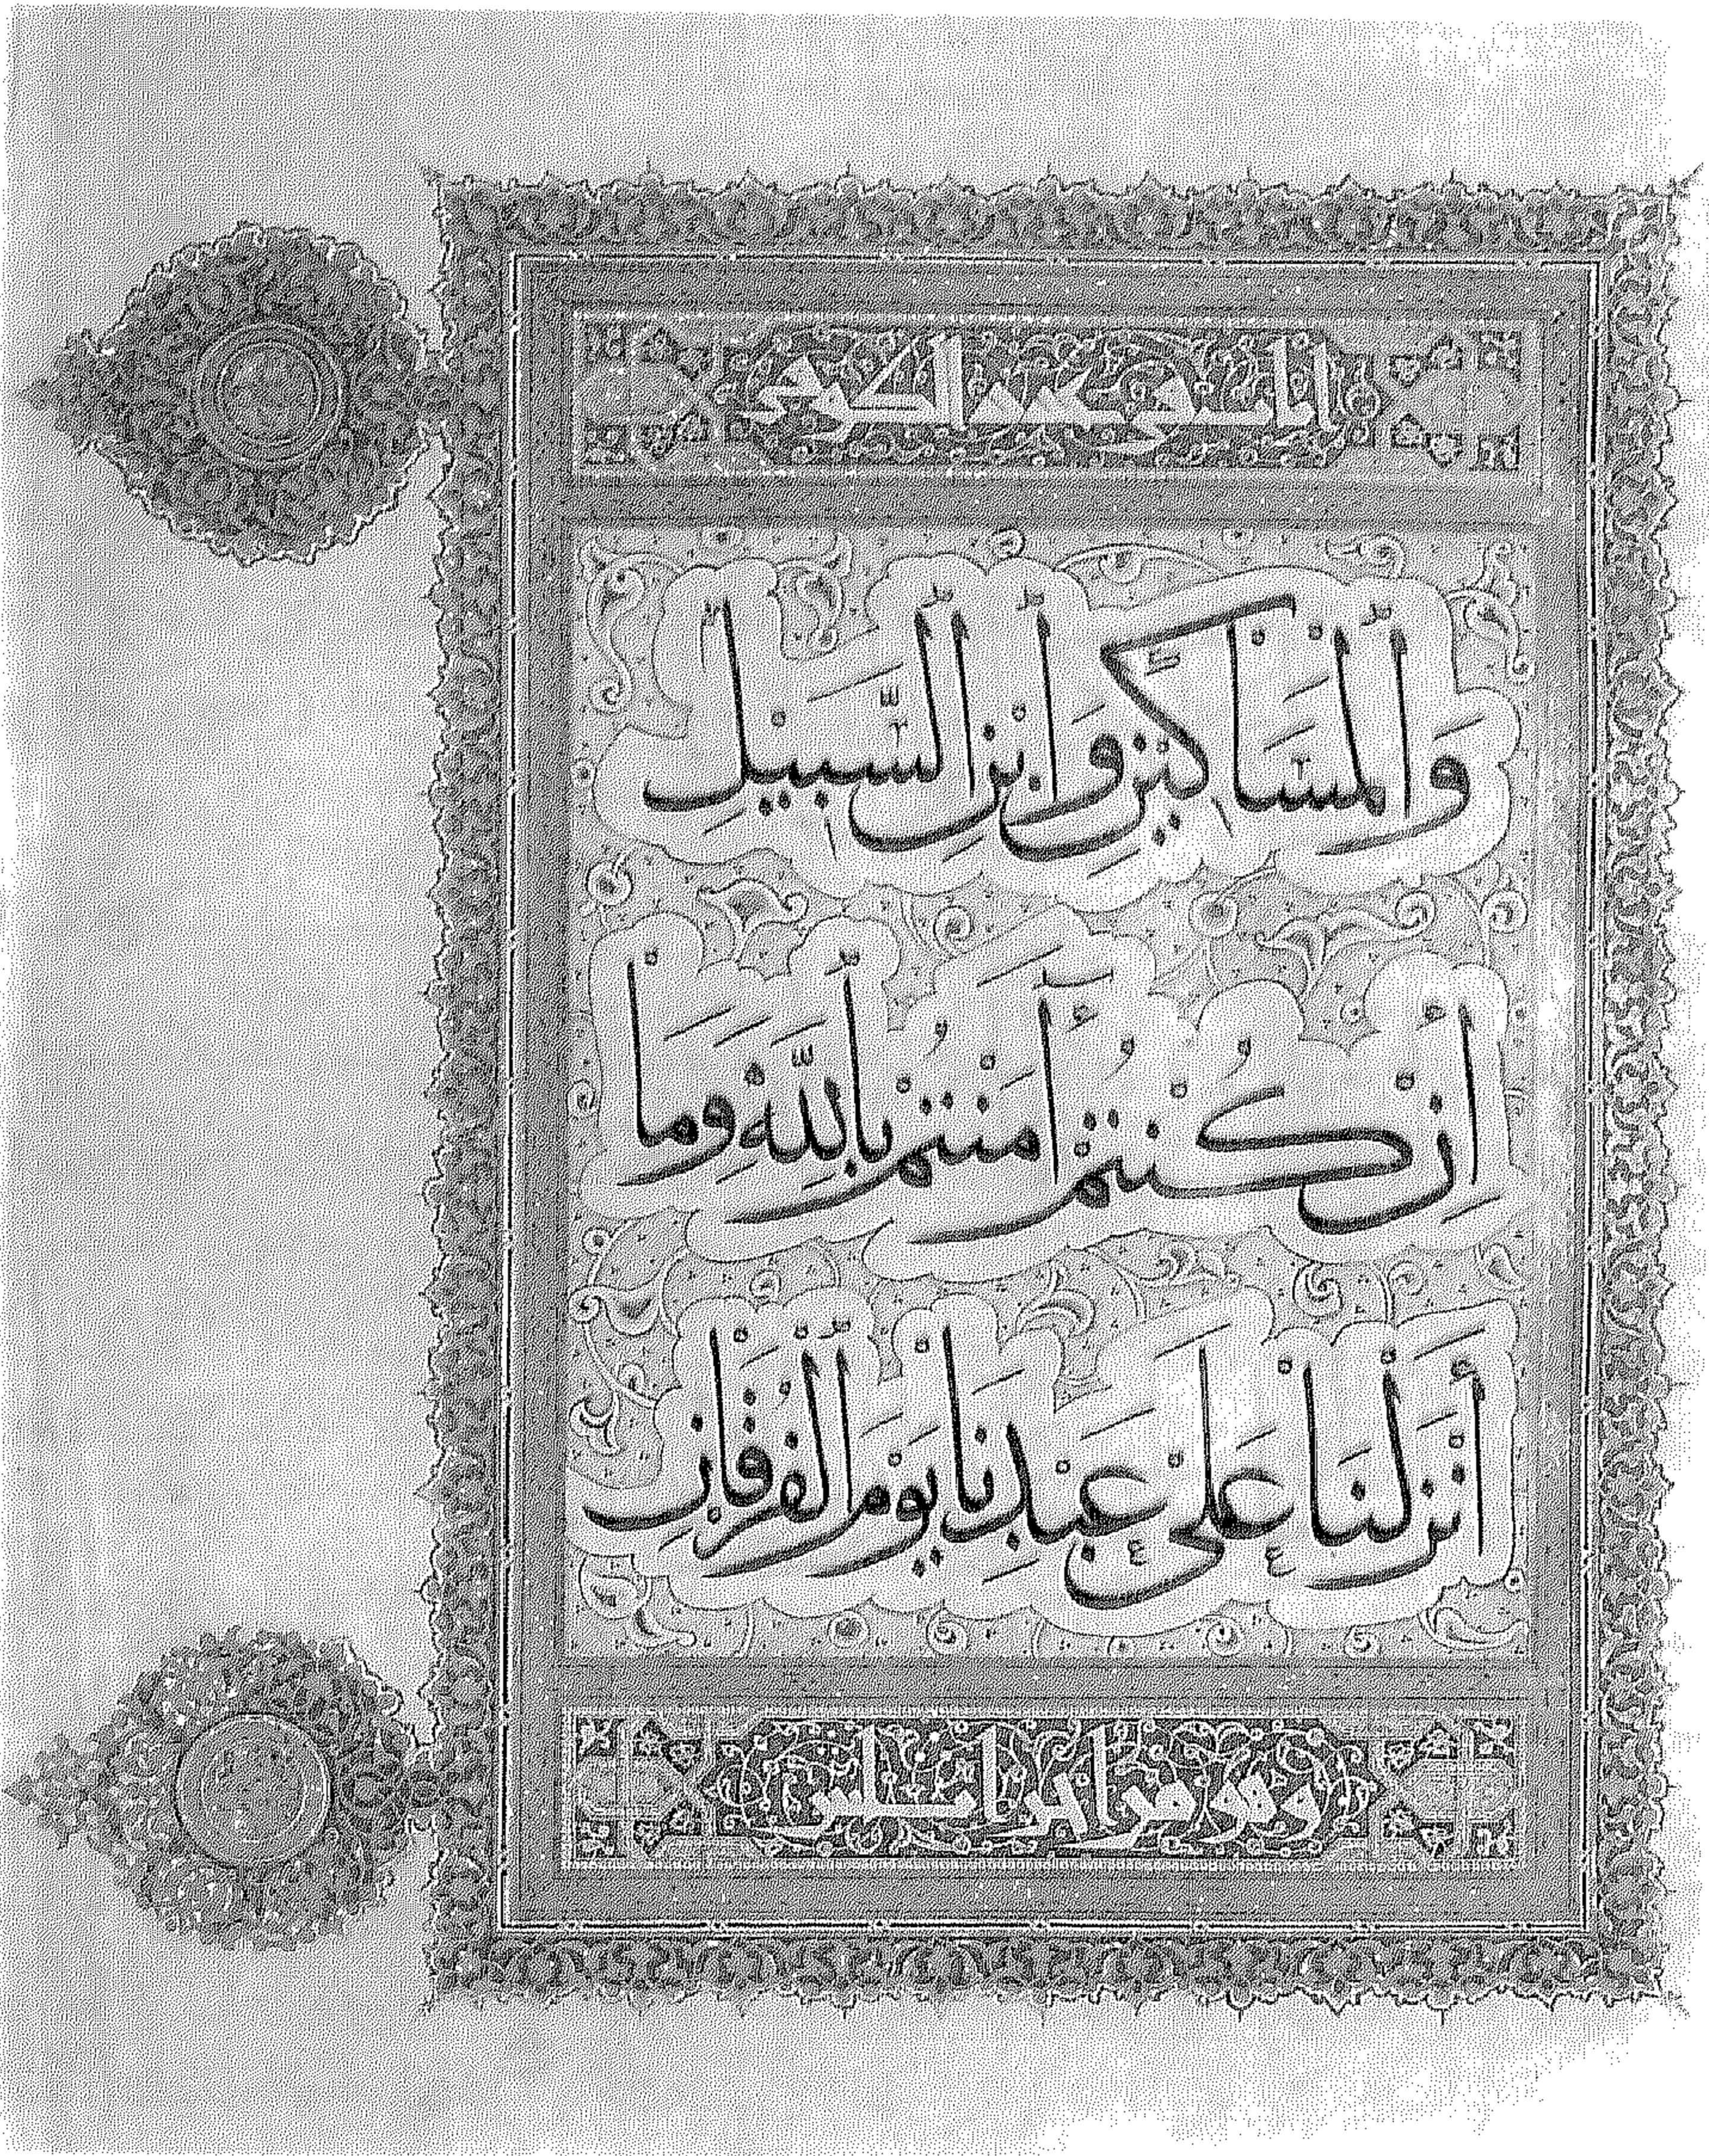 وَٱلْمَسَاكِينِ وَٱبْنِ ٱلسَّبِيلِ
اِنْ كُنْتُمْ اٰمَنْتُمْ بِٱللّٰهِ وَمَا
أَنْزَلْنَا عَلَى عَبْدِنَا يَوْمَ ٱلْفُرْقَانِ